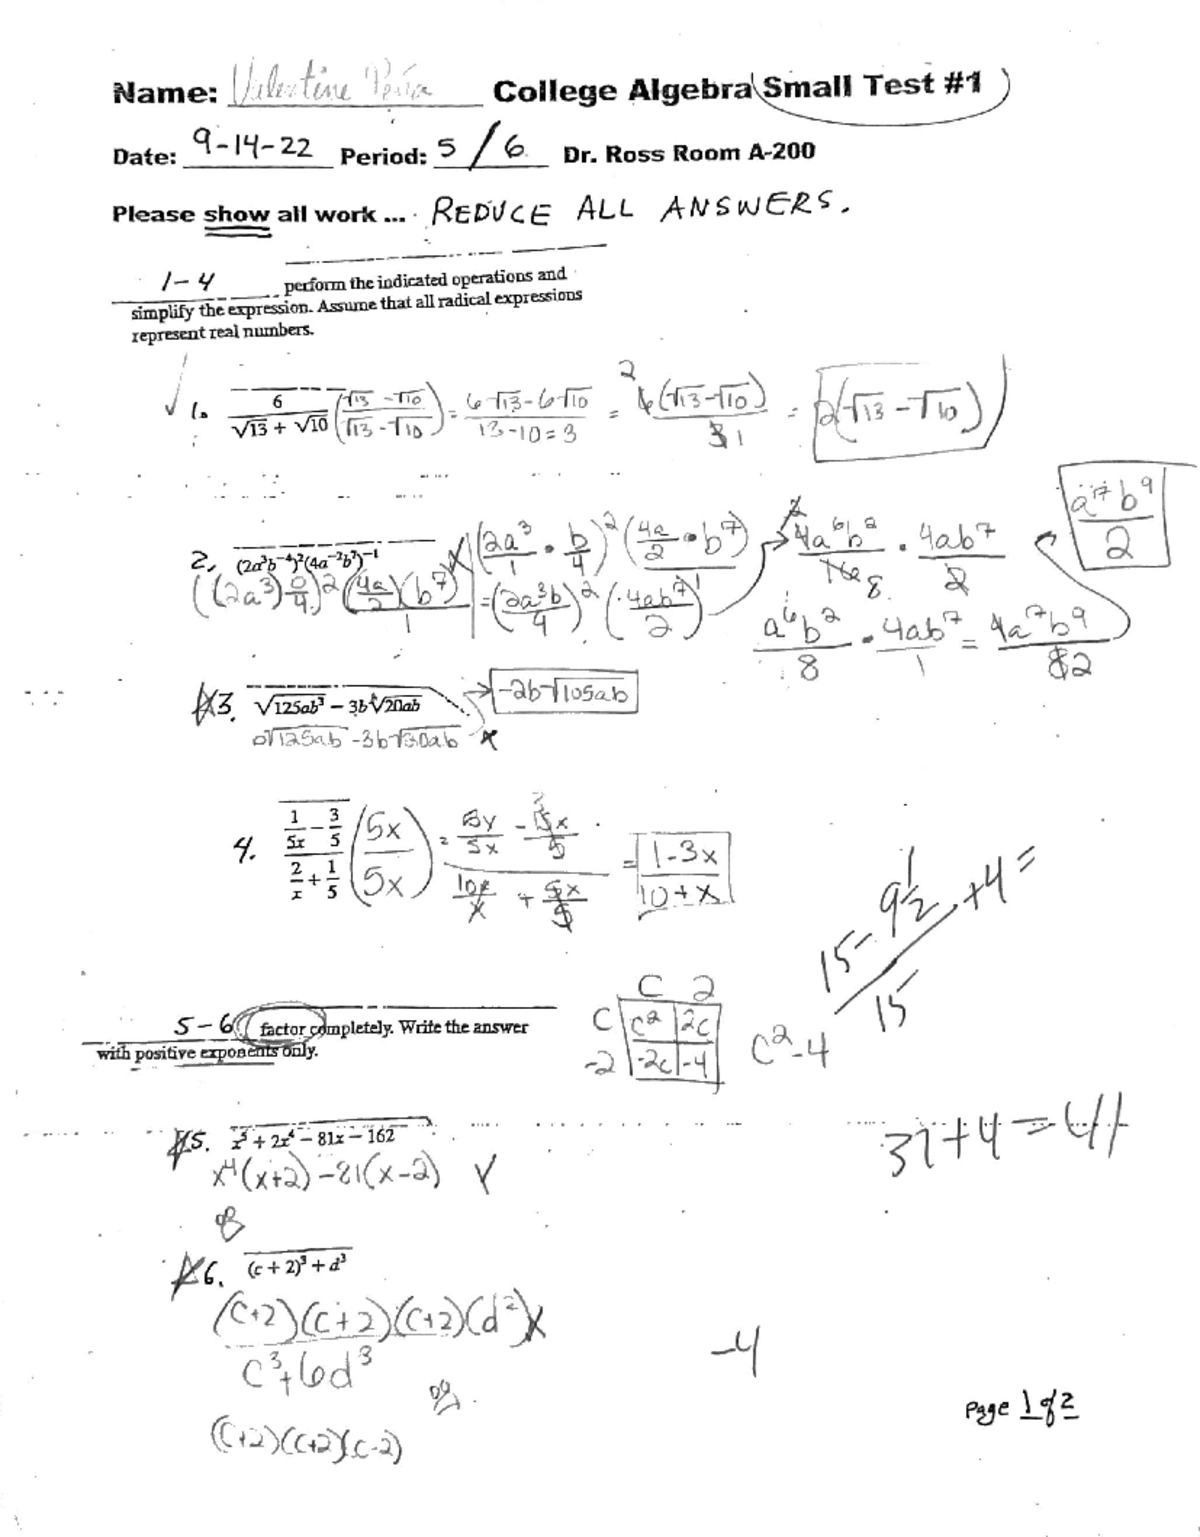 Name: Valentine Peña College Algebra Small Test #1
Date: 9-14-22 Period: 5/6 Dr. Ross Room A-200
Please show all work ... REDUCE ALL ANSWERS.
1-4 perform the indicated operations and
simplify the expression. Assume that all radical expressions
represent real numbers.
1. 6/(√13 + √10) (√13 - √10)/(√13 - √10) = (6√13 - 6√10)/(13-10=3) = 2 6(√13-√10)/3 1 = 2(√13 - √10)
2. (2a³b⁻⁴)²(4a⁻²b⁷)⁻¹ (2a³/1 · b/4)² (4a/2 · b⁷) → 4a⁶b²/16 8 · 4ab⁷/2 a¹⁷b⁹/2
((2a³) /4)² (4a/2)(b⁷)/1 = (2a³b/4)² (4ab⁷/2)¹ a⁶b²/8 · 4ab⁷/1 = 4a⁷b⁹/8 2
3. √125ab³ - 3b√20ab → -2b√105ab
√125ab - 3b√30ab x
4. (1/5x - 3/5)/(2/x + 1/5) (5x/5x) = (5x/5x - 15x/5)/(10x/x + 5x/5) = (1-3x)/(10+x)
(15-9½)/15 +4=
5-6 factor completely. Write the answer
with positive exponents only.
C 2
C c² 2c
-2 -2c -4 c²-4
5. x⁵ + 2x⁴ - 81x - 162
x⁴(x+2) -81(x-2) x
37+4=41
6. (c + 2)³ + d³
(C+2)(C+2)(C+2)(d²)x
c³+6d³
-4
(C+2)(C+2)(C-2)
Page 1 of 2